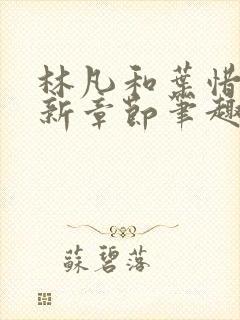 林凡和葉惜
新章節筆趣
蘇碧落